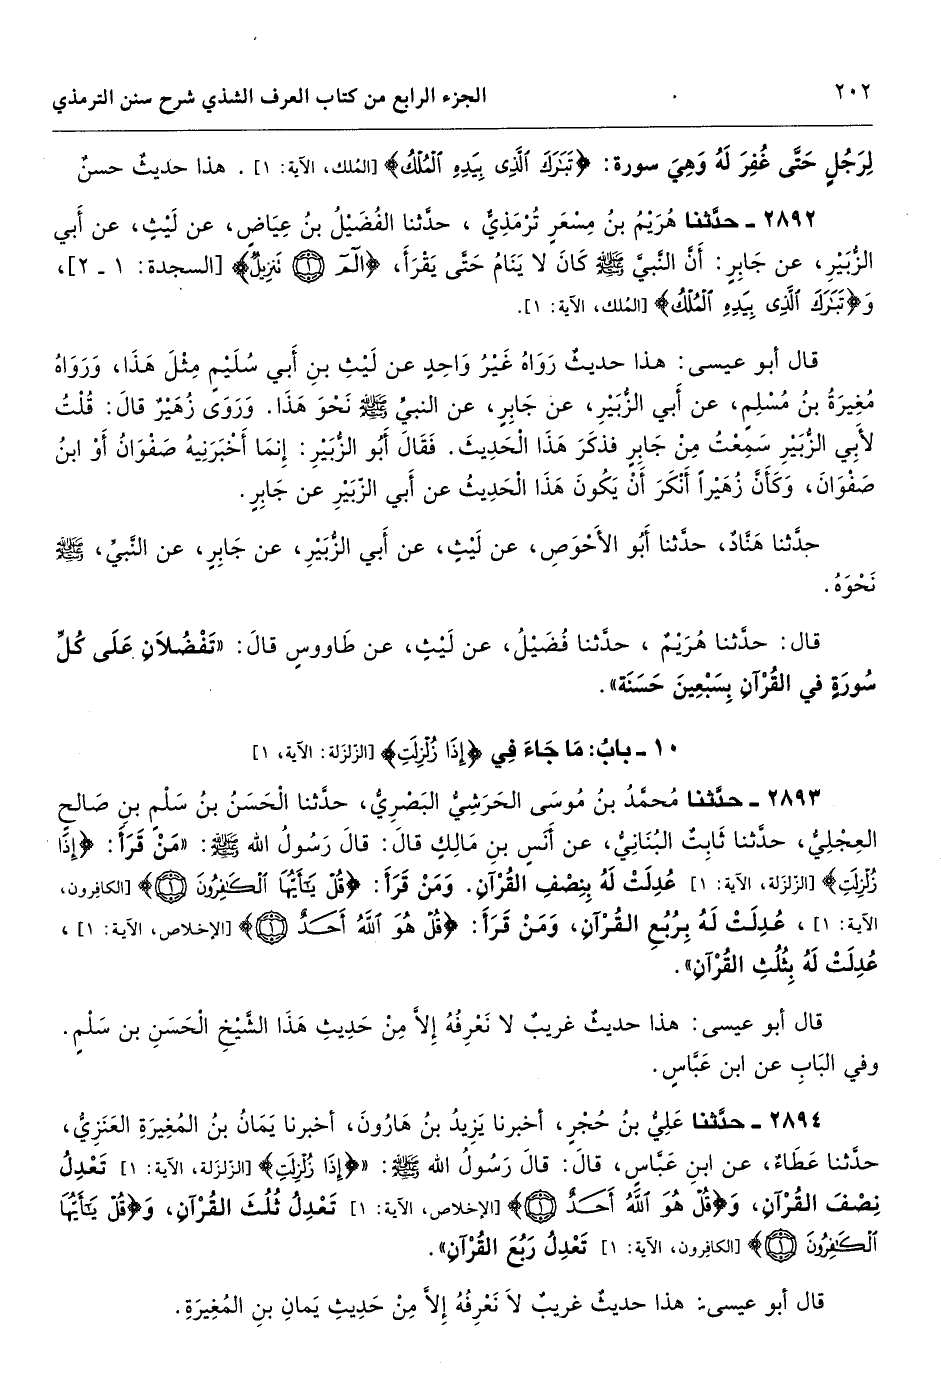 ٢٠٢ الجزء الرابع من كتاب العرف الشذي شرح سنن الترمذي
لِرَجُلٍ حَتَّى غُفِرَ لَهُ وَهِيَ سورة: ﴿تَبَٰرَكَ ٱلَّذِى بِيَدِهِ ٱلْمُلْكُ﴾ [المُلك، الآية: ١] . هذا حديثٌ حسنٌ
٢٨٩٢ ـ حدَّثنا هُرَيْمُ بنُ مِسْعَرٍ تُرْمَذِيٌّ ، حدَّثنا الفُضَيْلُ بنُ عِيَاضٍ، عن لَيْثٍ، عن أبي
الزُّبَيْرِ، عن جَابِرٍ: أنَّ النبيَّ ﷺ كَانَ لا يَنَامُ حَتَّى يَقْرَأَ، ﴿الٓمٓ ۝١ تَنزِيلُ﴾ [السجدة: ١ ـ ٢]،
وَ﴿تَبَٰرَكَ ٱلَّذِى بِيَدِهِ ٱلْمُلْكُ﴾ [المُلك، الآية: ١].
قال أبو عيسى: هذا حديثٌ رَوَاهُ غَيْرُ وَاحِدٍ عن لَيْثِ بنِ أبي سُلَيْمٍ مِثْلَ هَذَا، وَرَوَاهُ
مُغِيرَةُ بنُ مُسْلِمٍ، عن أبي الزُّبَيْرِ، عن جَابِرٍ، عن النبيِّ ﷺ نَحْوَ هَذَا. وَرَوَى زُهَيْرٌ قالَ: قُلْتُ
لأبِي الزُّبَيْرِ سَمِعْتُ مِنْ جَابِرٍ فذكَرَ هَذَا الْحَدِيثَ. فَقَالَ أبُو الزُّبَيْرِ: إنمَا أخْبَرَنِيهُ صَفْوَانُ أوْ ابنُ
صَفْوَانَ، وَكَأنَّ زُهَيْراً أنْكَرَ أنْ يَكُونَ هَذَا الْحَدِيثُ عن أبي الزّبَيْرِ عن جَابِرٍ.
حدَّثنا هَنَّادٌ، حدَّثنا أبُو الأَحْوَصِ، عن لَيْثٍ، عن أبي الزُّبَيْرِ، عن جَابِرٍ، عن النَّبيِّ، ﷺ
نَحْوَهُ.
قال: حدَّثنا هُرَيْمٌ ، حدَّثنا فُضَيْلُ، عن لَيْثٍ، عن طَاووسٍ قالَ: «تَفْضُلاَنِ عَلَى كُلِّ
سُورَةٍ في القُرْآنِ بِسَبْعِينَ حَسَنَة».
١٠ ـ بابُ: مَا جَاءَ فِي ﴿إِذَا زُلْزِلَتِ﴾ [الزلزلة: الآية، ١]
٢٨٩٣ ـ حدَّثنا مُحمَّدُ بنُ مُوسَى الحَرَشِيُّ البَصْرِيُّ، حدَّثنا الْحَسَنُ بنُ سَلْمِ بنِ صَالحٍ
العِجْلِيُّ، حدَّثنا ثَابِتٌ البُنَانِيُّ، عن أنَسِ بنِ مَالِكٍ قالَ: قالَ رَسُولُ الله ﷺ: «مَنْ قَرَأ: ﴿إِذَا
زُلْزِلَتِ﴾ [الزلزلة، الآية: ١] عُدِلَتْ لَهُ بِنِصْفِ القُرْآنِ. وَمَنْ قَرَأَ: ﴿قُلْ يَٰٓأَيُّهَا ٱلْكَٰفِرُونَ ۝١﴾ [الكافرون،
الآية: ١] ، عُدِلَتْ لَهُ بِرُبُعِ القُرْآنِ، وَمَنْ قَرَأَ: ﴿قُلْ هُوَ ٱللَّهُ أَحَدٌ ۝١﴾ [الإخلاص، الآية: ١] ،
عُدِلَتْ لَهُ بِثُلُثِ القُرْآنِ».
قال أبو عيسى: هذا حديثٌ غريبٌ لا نَعْرِفُهُ إلاَّ مِنْ حَدِيثِ هَذَا الشَّيْخِ الْحَسَنِ بن سَلْمٍ.
وفي البَابِ عن ابن عَبَّاسٍ.
٢٨٩٤ ـ حدَّثنا عَلِيُّ بنُ حُجْرٍ، أخبرنا يَزِيدُ بنُ هَارُونَ، أخبرنا يَمَانُ بنُ المُغِيرَةِ العَنَزِيُّ،
حدَّثنا عَطَاءٌ، عن ابنِ عَبَّاسٍ، قالَ: قالَ رَسُولُ الله ﷺ: «﴿إِذَا زُلْزِلَتِ﴾ [الزلزلة، الآية: ١] تَعْدِلُ
نِصْفَ القُرْآنِ، وَ﴿قُلْ هُوَ ٱللَّهُ أَحَدٌ ۝١﴾ [الإخلاص، الآية: ١] تَعْدِلُ ثُلُثَ القُرْآنِ، وَ﴿قُلْ يَٰٓأَيُّهَا
ٱلْكَٰفِرُونَ ۝١﴾ [الكافرون، الآية: ١] تَعْدِلُ رَبُعَ القُرْآنِ».
قال أبو عيسى: هذا حديثٌ غريبٌ لاَ نَعْرِفُهُ إلاَّ مِنْ حَدِيثِ يَمانِ بنِ المُغِيرَةِ.